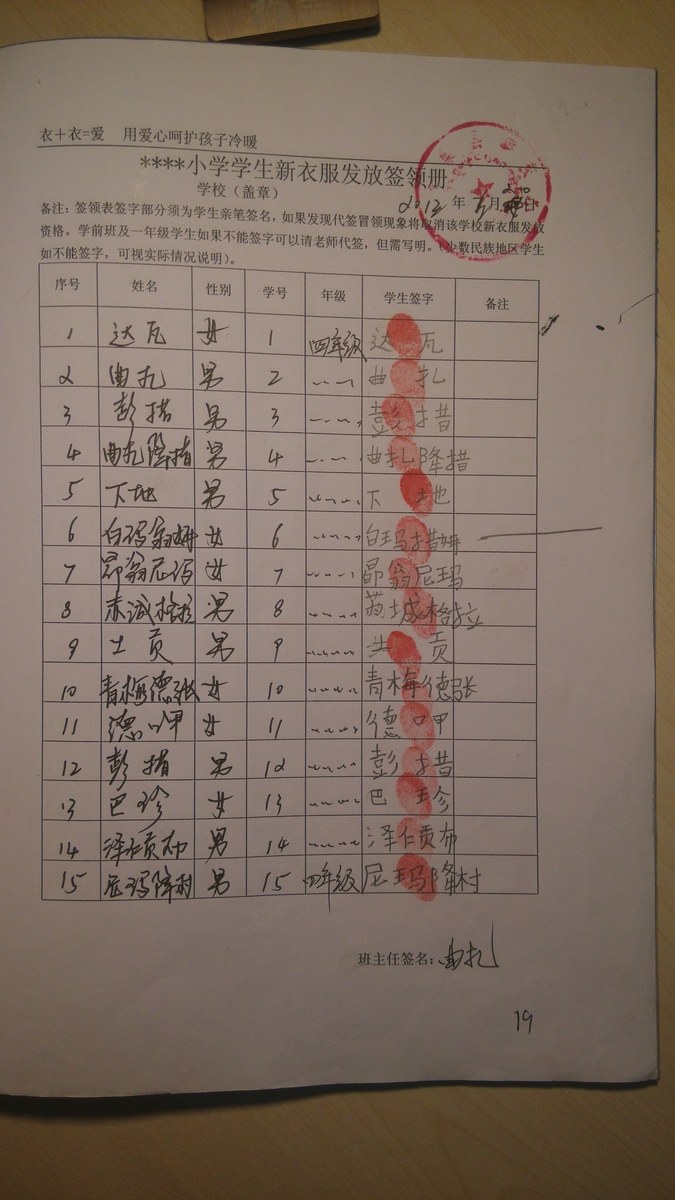 衣＋衣=爱 用爱心呵护孩子冷暖
****小学学生新衣服发放签领册
学校（盖章） 2012 年 月 日
备注：签领表签字部分须为学生亲笔签名，如果发现代签冒领现象将取消该学校新衣服发放
资格。学前班及一年级学生如果不能签字可以请老师代签，但需写明。（少数民族地区学生
如不能签字，可视实际情况说明）。
序号 姓名 性别 学号 年级 学生签字 备注
1 达瓦 女 1 四年级 达瓦
2 曲扎 男 2 曲扎
3 彭措 男 3 彭措
4 曲扎降措 男 4 曲扎降措
5 下地 男 5 下地
6 白玛翁姆 女 6 白玛措姆
7 昂翁尼玛 女 7 昂翁尼玛
8 男 8 城格拉
9 土贡 男 9 贡
10 青梅德张 女 10 青梅德张
11 德呷 女 11 德呷
12 彭措 男 12 彭措
13 巴珍 女 13 巴珍
14 泽仁贡布 男 14 泽仁贡布
15 尼玛降村 男 15 四年级 尼玛降村
班主任签名：曲扎
19